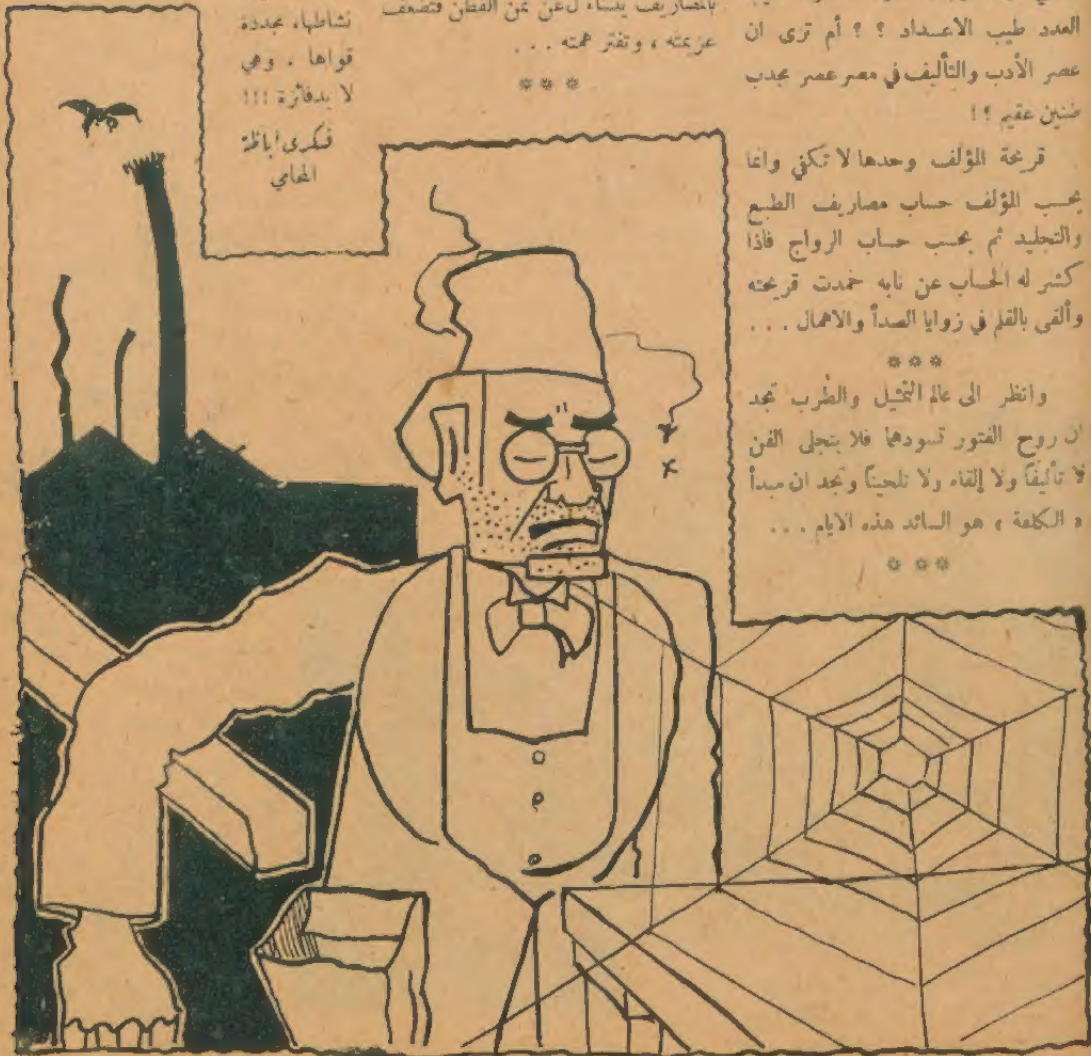 العدد طيب الاعداد ؟ ؟ أم ترى ان
عصر الأدب والتأليف في مصر عصر مجدب
ضنين عقيم ؟!
قريحة المؤلف وحدها لا تكفي وانما
يحسب المؤلف حساب مصاريف الطبع
والتجليد ثم يحسب حساب الرواج فاذا
كشر له الحساب عن نابه خمدت قريحته
وألقى بالقلم في زوايا الصدأ والاهمال . . .
* * *
وانظر الى عالم التمثيل والطرب تجد
ان روح الفتور تسودهما فلا يتجلى الفن
لا تأليفاً ولا إلقاء ولا تلحيناً وتجد ان مبدأ
« الكلفتة » هو السائد هذه الايام . . .
* * *
بالمصاريف يتساءل عن ثمن القطن فتضعف
عزيمته ، وتفتر همته . . .
* * *
نشاطها، مجددة
قواها ، وهي
لا بد فائزة !!!
فكرى أباظة
المحامي